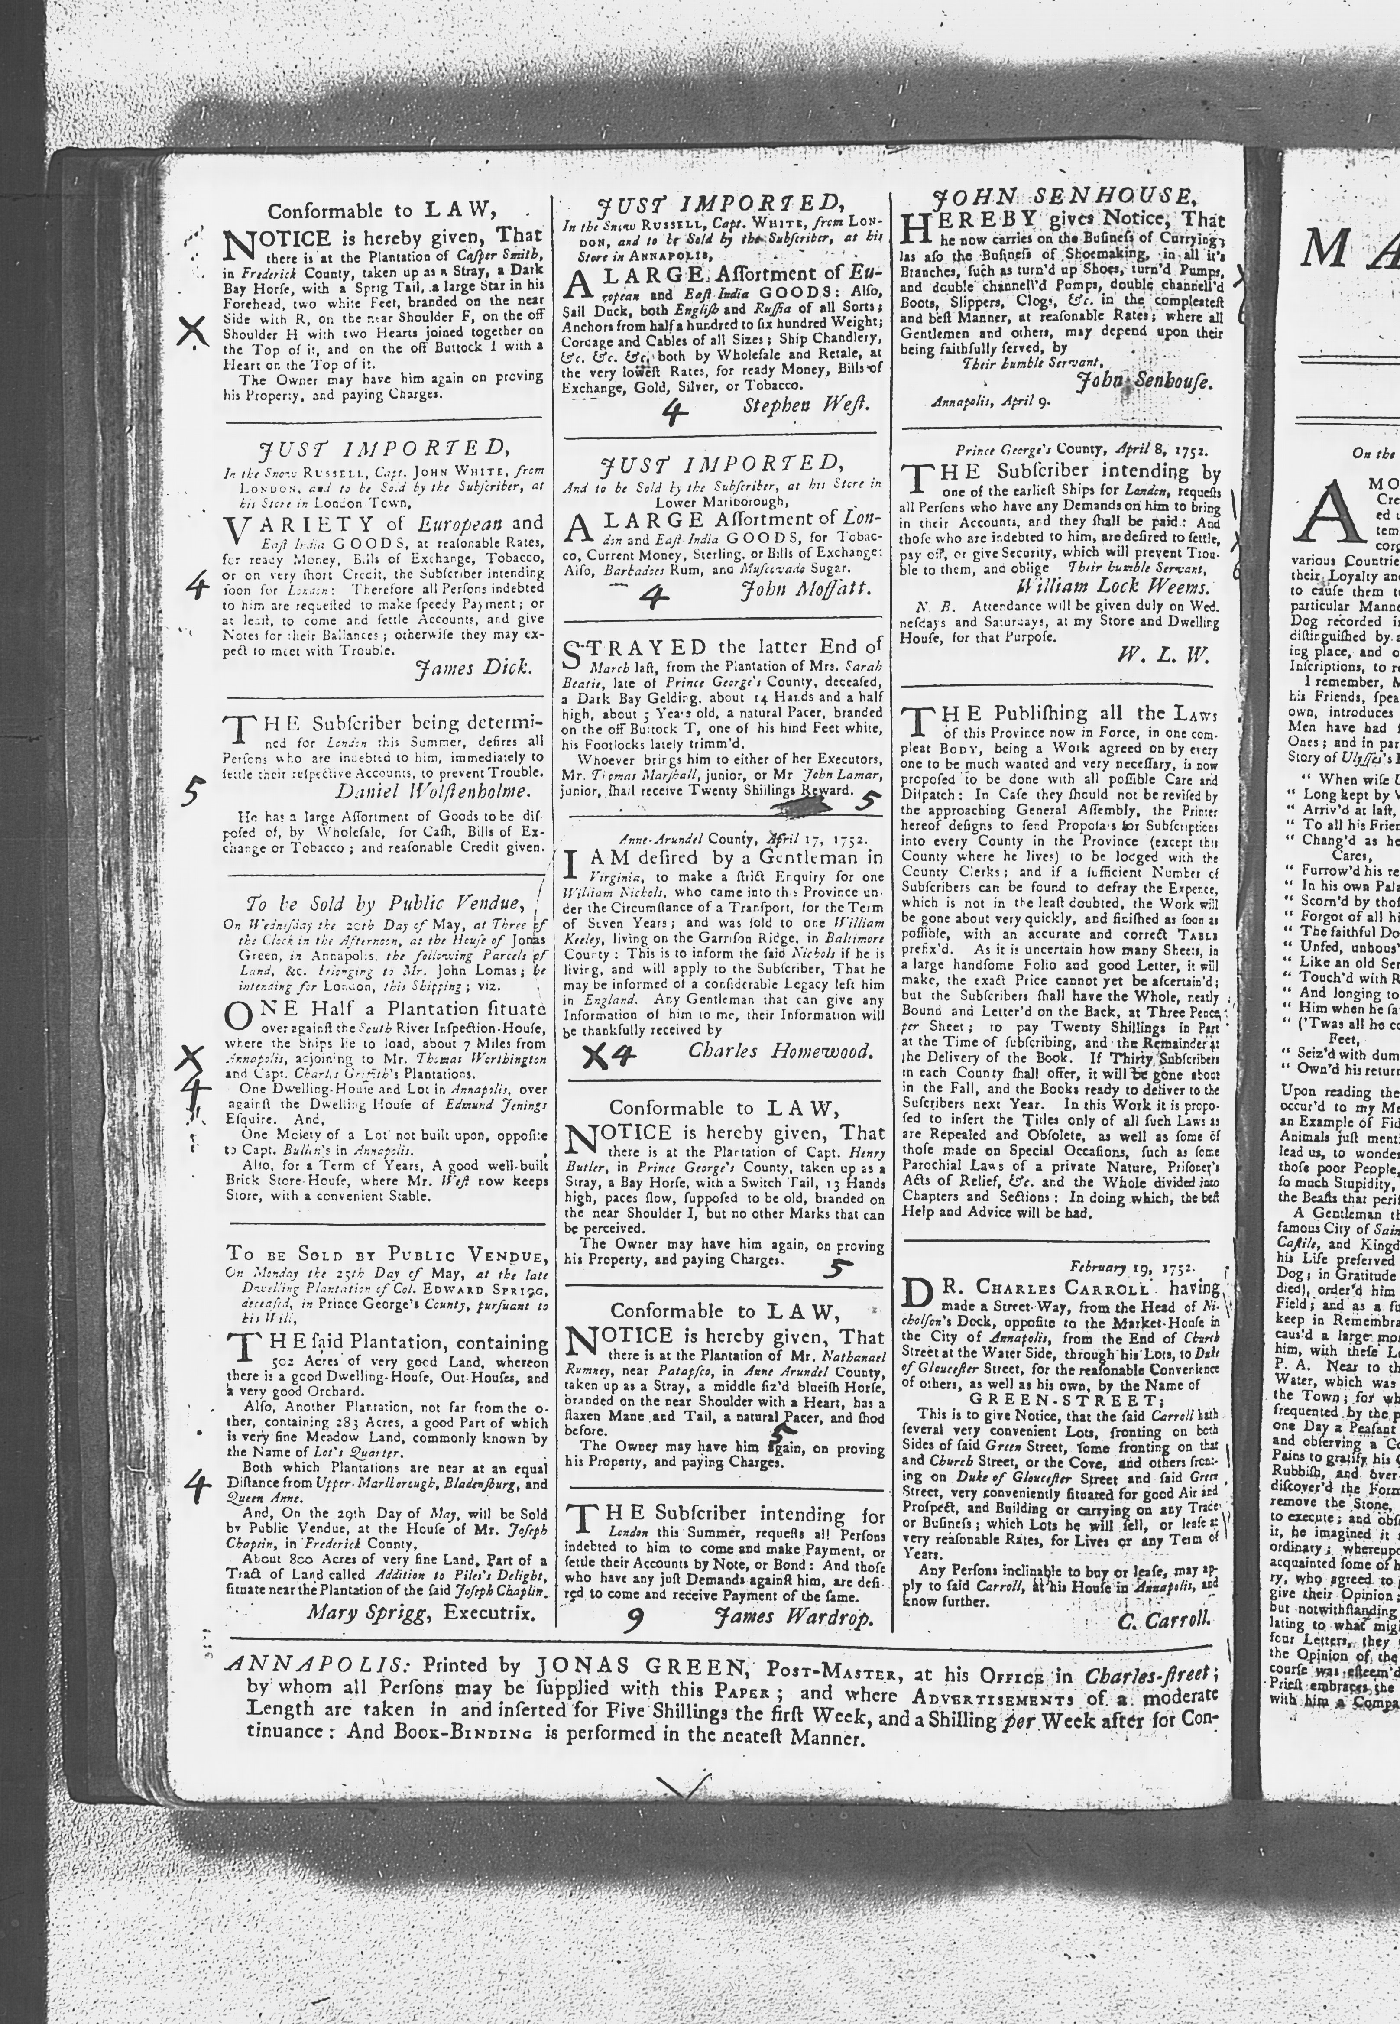 Conformable to LAW,
NOTICE is hereby given, That
there is at the Plantation of Casper Smith,
in Frederick County, taken up as a Stray, a Dark
Bay Horse, with a Sprig Tail, a large Star in his
Forehead, two white Feet, branded on the near
Side with R, on the near Shoulder F, on the off
Shoulder H with two Hearts joined together on
the Top of it, and on the off Buttock I with a
Heart on the Top of it.
The Owner may have him again on proving
his Property, and paying Charges.
X
JUST IMPORTED,
In the Snow RUSSELL, Capt. JOHN WHITE, from
LONDON, and to be Sold by the Subſcriber, at
his Store in London Town,
VARIETY of European and
East India GOODS, at reaſonable Rates,
for ready Money, Bills of Exchange, Tobacco,
or on very ſhort Credit, the Subſcriber intending
ſoon for London: Therefore all Perſons indebted
to him are requeſted to make ſpeedy Payment; or
at leaſt, to come and ſettle Accounts, and give
Notes for their Ballances; otherwiſe they may ex-
pect to meet with Trouble.
James Dick.
4
THE Subſcriber being determi-
ned for London this Summer, deſires all
Perſons who are indebted to him, immediately to
ſettle their reſpective Accounts, to prevent Trouble.
Daniel Wolſtenholme.
5
He has a large Aſſortment of Goods to be diſ-
poſed of, by Wholeſale, for Caſh, Bills of Ex-
change or Tobacco; and reaſonable Credit given.
To be Sold by Public Vendue,
On Wedneſday the 20th Day of May, at Three of
the Clock in the Afternoon, at the Houſe of Jonas
Green, in Annapolis, the following Parcels of
Land, &c. belonging to Mr. John Lomas; he
intending for London, this Shipping; viz.
ONE Half a Plantation ſituate
over againſt the South River Inſpection-Houſe,
where the Ships lie to load, about 7 Miles from
Annapolis, adjoining to Mr. Thomas Worthington
and Capt. Charles Griffith's Plantations.
One Dwelling-Houſe and Lot in Annapolis, over
againſt the Dwelling Houſe of Edmund Jenings
Eſquire. And,
One Moiety of a Lot not built upon, oppoſite
to Capt. Bullin's in Annapolis.
Alſo, for a Term of Years, A good well-built
Brick Store-Houſe, where Mr. Weſt now keeps
Store, with a convenient Stable.
X
4
TO BE SOLD BY PUBLIC VENDUE,
On Monday the 25th Day of May, at the late
Dwelling Plantation of Col. EDWARD SPRIGG,
deceaſed, in Prince George's County, purſuant to
his Will,
THE ſaid Plantation, containing
502 Acres of very good Land, whereon
there is a good Dwelling-Houſe, Out-Houſes, and
a very good Orchard.
Alſo, Another Plantation, not far from the o-
ther, containing 283 Acres, a good Part of which
is very fine Meadow Land, commonly known by
the Name of Lot's Quarter.
Both which Plantations are near at an equal
Diſtance from Upper-Marlborough, Bladenſburg, and
Queen Anne.
And, On the 29th Day of May, will be Sold
by Public Vendue, at the Houſe of Mr. Joſeph
Chaplin, in Frederick County,
About 800 Acres of very fine Land, Part of a
Tract of Land called Addition to Piles's Delight,
ſituate near the Plantation of the ſaid Joſeph Chaplin.
Mary Sprigg, Executrix.
4
JUST IMPORTED,
In the Snow RUSSELL, Capt. WHITE, from LON-
DON, and to be Sold by the Subſcriber, at his
Store in ANNAPOLIS,
A LARGE Aſſortment of Eu-
ropean and Eaſt-India GOODS: Alſo,
Sail Duck, both Engliſh and Ruſſia of all Sorts;
Anchors from half a hundred to ſix hundred Weight;
Cordage and Cables of all Sizes; Ship Chandlery,
&c. &c. &c. both by Wholeſale and Retale, at
the very loweſt Rates, for ready Money, Bills of
Exchange, Gold, Silver, or Tobacco.
4 Stephen Weſt.
JUST IMPORTED,
And to be Sold by the Subſcriber, at his Store in
Lower Marlborough,
A LARGE Aſſortment of Lon-
don and Eaſt India GOODS, for Tobac-
co, Current Money, Sterling, or Bills of Exchange:
Alſo, Barbadoes Rum, and Muſcovado Sugar.
4 John Moffatt.
STRAYED the latter End of
March laſt, from the Plantation of Mrs. Sarah
Beatie, late of Prince George's County, deceaſed,
a Dark Bay Gelding, about 14 Hands and a half
high, about 5 Years old, a natural Pacer, branded
on the off Buttock T, one of his hind Feet white,
his Footlocks lately trimm'd.
Whoever brings him to either of her Executors,
Mr. Thomas Marſhall, junior, or Mr John Lamar,
junior, ſhall receive Twenty Shillings Reward.
5
Anne-Arundel County, April 17, 1752.
I AM deſired by a Gentleman in
Virginia, to make a ſtrict Enquiry for one
William Nichols, who came into this Province un-
der the Circumſtance of a Tranſport, for the Term
of Seven Years; and was ſold to one William
Keeley, living on the Garriſon Ridge, in Baltimore
County: This is to inform the ſaid Nichols if he is
living, and will apply to the Subſcriber, That he
may be informed of a conſiderable Legacy left him
in England. Any Gentleman that can give any
Information of him to me, their Information will
be thankfully received by
X4 Charles Homewood.
Conformable to LAW,
NOTICE is hereby given, That
there is at the Plantation of Capt. Henry
Butler, in Prince George's County, taken up as a
Stray, a Bay Horſe, with a Switch Tail, 13 Hands
high, paces ſlow, ſuppoſed to be old, branded on
the near Shoulder I, but no other Marks that can
be perceived.
The Owner may have him again, on proving
his Property, and paying Charges.
5
Conformable to LAW,
NOTICE is hereby given, That
there is at the Plantation of Mr. Nathanael
Rumney, near Patapſco, in Anne Arundel County,
taken up as a Stray, a middle ſiz'd blueiſh Horſe,
branded on the near Shoulder with a Heart, has a
flaxen Mane and Tail, a natural Pacer, and ſhod
before.
5
The Owner may have him again, on proving
his Property, and paying Charges.
THE Subſcriber intending for
London this Summer, requeſts all Perſons
indebted to him to come and make Payment, or
ſettle their Accounts by Note, or Bond: And thoſe
who have any juſt Demands againſt him, are deſi-
red to come and receive Payment of the ſame.
9 James Wardrop.
JOHN SENHOUSE,
HEREBY gives Notice, That
he now carries on the Buſineſs of Currying,
las alſo the Buſineſs of Shoemaking, in all it's
Branches, ſuch as turn'd up Shoes, turn'd Pumps,
and double channell'd Pumps, double channell'd
Boots, Slippers, Clogs, &c. in the compleateſt
and beſt Manner, at reaſonable Rates; where all
Gentlemen and others, may depend upon their
being faithfully ſerved, by
Their humble Servant,
John Senhouſe.
Annapolis, April 9.
Prince George's County, April 8, 1752.
THE Subſcriber intending by
one of the earlieſt Ships for London, requeſts
all Perſons who have any Demands on him to bring
in their Accounts, and they ſhall be paid: And
thoſe who are indebted to him, are deſired to ſettle,
pay off, or give Security, which will prevent Trou-
ble to them, and oblige Their humble Servant,
William Lock Weems.
N. B. Attendance will be given duly on Wed-
neſdays and Saturdays, at my Store and Dwelling
Houſe, for that Purpoſe.
W. L. W.
THE Publiſhing all the LAWS
of this Province now in Force, in one com-
pleat BODY, being a Work agreed on by every
one to be much wanted and very neceſſary, is now
propoſed to be done with all poſſible Care and
Diſpatch: In Caſe they ſhould not be reviſed by
the approaching General Aſſembly, the Printer
hereof deſigns to ſend Propoſals for Subſcriptions
into every County in the Province (except this
County where he lives) to be lodged with the
County Clerks; and if a ſufficient Number of
Subſcribers can be found to defray the Expence,
which is not in the leaſt doubted, the Work will
be gone about very quickly, and finiſhed as ſoon as
poſſible, with an accurate and correct TABLE
prefix'd. As it is uncertain how many Sheets, in
a large handſome Folio and good Letter, it will
make, the exact Price cannot yet be aſcertain'd;
but the Subſcribers ſhall have the Whole, neatly
Bound and Letter'd on the Back, at Three Pence
per Sheet; to pay Twenty Shillings in Part
at the Time of ſubſcribing, and the Remainder at
the Delivery of the Book. If Thirty Subſcribers
in each County ſhall offer, it will be gone about
in the Fall, and the Books ready to deliver to the
Suſcribers next Year. In this Work it is propo-
ſed to inſert the Titles only of all ſuch Laws as
are Repealed and Obſolete, as well as ſome of
thoſe made on Special Occaſions, ſuch as ſome
Parochial Laws of a private Nature, Priſoner's
Acts of Relief, &c. and the Whole divided into
Chapters and Sections: In doing which, the beſt
Help and Advice will be had.
February 19, 1752.
DR. CHARLES CARROLL having
made a Street-Way, from the Head of Ni-
cholſon's Dock, oppoſite to the Market-Houſe in
the City of Annapolis, from the End of Church
Street at the Water Side, through his Lots, to Duke
of Glouceſter Street, for the reaſonable Convenience
of others, as well as his own, by the Name of
GREEN-STREET;
This is to give Notice, that the ſaid Carroll hath
ſeveral very convenient Lots, fronting on both
Sides of ſaid Green Street, ſome fronting on that
and Church Street, or the Cove, and others front-
ing on Duke of Glouceſter Street and ſaid Green
Street, very conveniently ſituated for good Air and
Proſpect, and Building or carrying on any Trade
or Buſineſs; which Lots he will ſell, or leaſe at
very reaſonable Rates, for Lives or any Term of
Years.
Any Perſons inclinable to buy or leaſe, may ap-
ply to ſaid Carroll, at his Houſe in Annapolis, and
know further.
C. Carroll.
ANNAPOLIS: Printed by JONAS GREEN, POST-MASTER, at his OFFICE in Charles-ſtreet;
by whom all Perſons may be ſupplied with this PAPER; and where ADVERTISEMENTS of a moderate
Length are taken in and inſerted for Five Shillings the firſt Week, and a Shilling per Week after for Con-
tinuance: And BOOK-BINDING is performed in the neateſt Manner.
M A
On the
A MO
various Countrie
their Loyalty and
to cauſe them t
particular Manne
Dog recorded in
diſtinguiſhed by
ing place, and o
Inſcriptions, to re
I remember, M
his Friends, ſpea
own, introduces
Men have had
Ones; and in par
Story of Ulyſſes's
" When wiſe U
" Long kept by
" Arriv'd at laſt,
" To all his Frien
" Chang'd as he
Cares,
" Furrow'd his re
" In his own Pala
" Scorn'd by thoſ
" Forgot of all hi
" The faithful Do
" Unfed, unhous'
" Like an old Ser
" Touch'd with R
" And longing to
" Him when he ſa
" ('Twas all he co
Feet,
" Seiz'd with dum
" Own'd his return
Upon reading the
occur'd to my Me
an Example of Fid
Animals juſt menti
lead us, to wonder
thoſe poor People,
ſo much Stupidity,
the Beaſts that peri
A Gentleman th
famous City of Sain
Caſtile, and Kingd
his Life preſerved
Dog; in Gratitude
died), order'd him
Field; and as a fu
keep in Remembra
caus'd a large mo
him, with theſe Le
P. A. Near to th
Water, which was
the Town; for wh
frequented by the p
one Day a Peaſant
and obſerving a Co
Pains to gratify his C
Rubbiſh, and over
diſcover'd the Form
remove the Stone,
to execute; and obſ
it, he imagined it
ordinary; whereupo
acquainted ſome of h
ry, who agreed to
give their Opinion;
but notwithſtanding
lating to what mig
four Letters, they
the Opinion of the
courſe was eſteem'd
Prieſt embraces the
with him a Compa